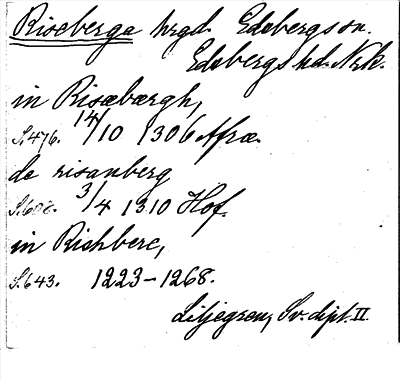 Riseberga hrgd. Edsbergs sn.
Edsbergs hd. Nrk.
in Risæbærgh,
S. 476. 14/10 1306 Afræ.
de risanberg
S. 608. 3/4 1310 Hof.
in Richberc,
S. 643. 1223-1268.
Liljegren, Sv. dipl. II.